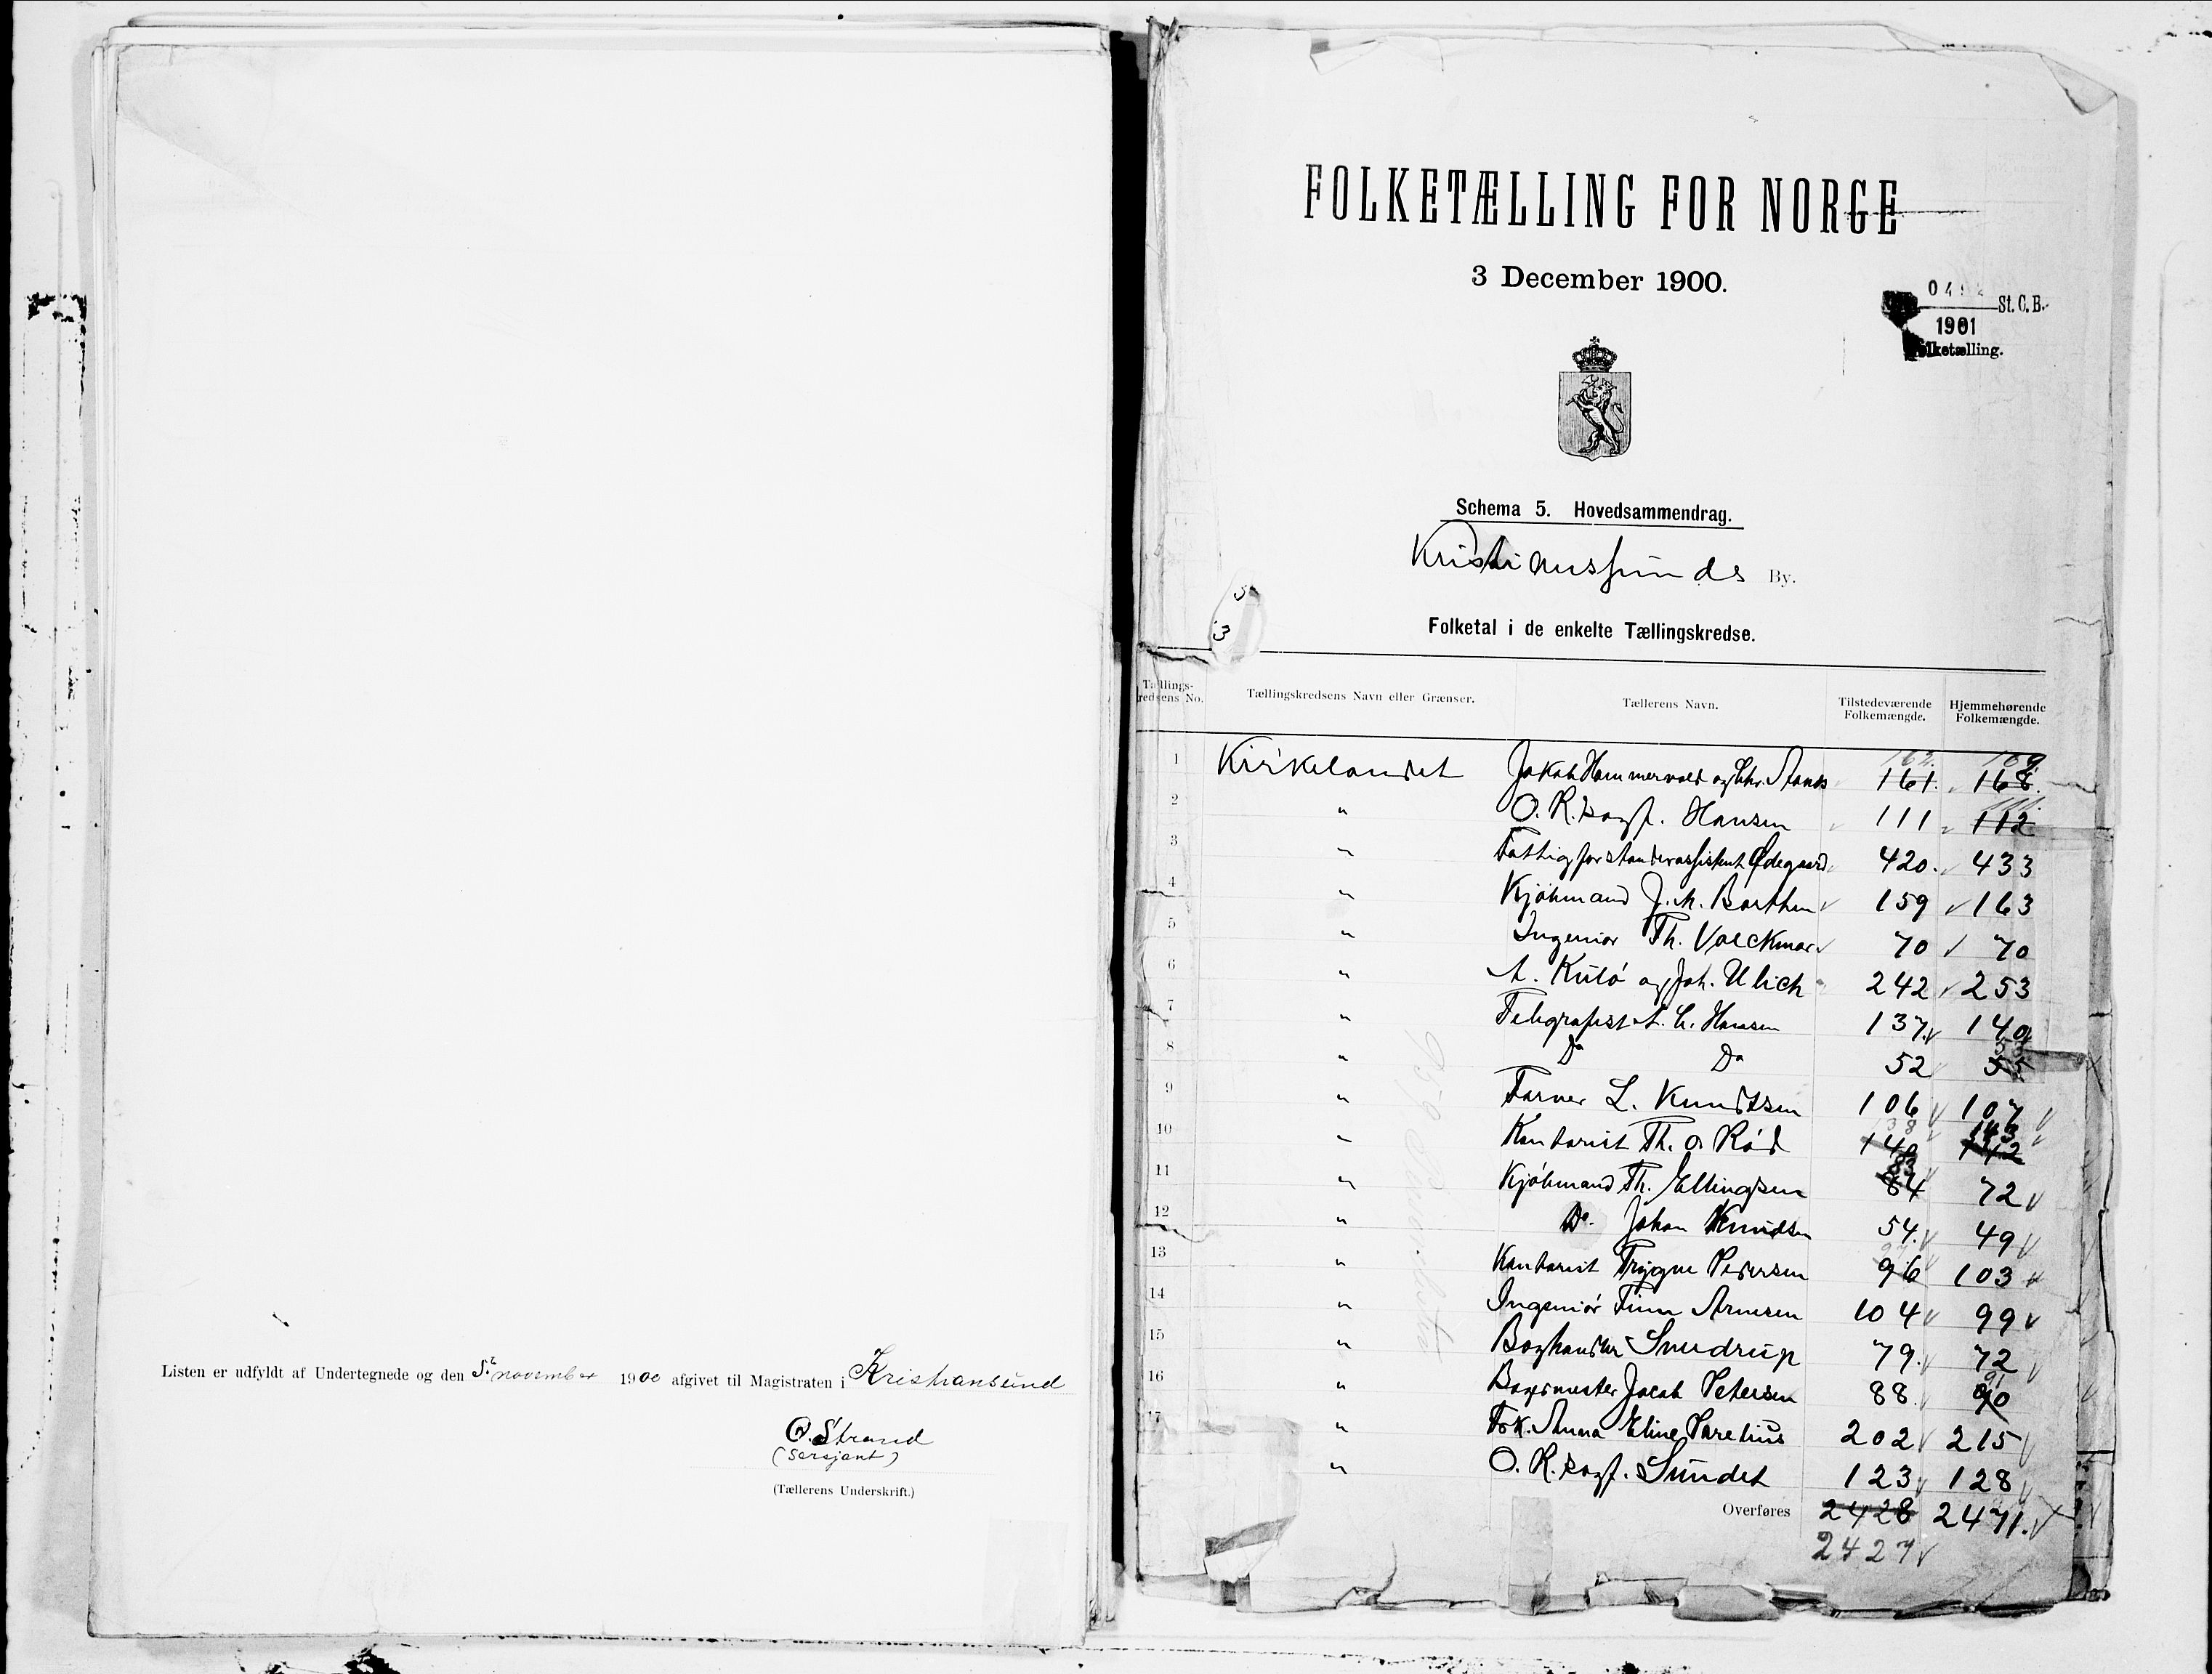 Listen er udfyldt af Undertegnede og den 5te november 1900 afgivet til Magistraten i Kristiansund
O. Strand
(Sersjant)
(Tællerens Underskrift.)
FOLKETÆLLING FOR NORGE
3 December 1900.
St. C. B.
1901
Folketælling.
Schema 5. Hovedsammendrag.
Kristianssunds By.
Folketal i de enkelte Tællingskredse.
Tællings-kredsens No. Tællingskredsens Navn eller Grænser. Tællerens Navn. Tilstedeværende Folkemængde. Hjemmehørende Folkemængde.
1 Kirkelandet Jakob Hammervold og Chr. 162. 161. 169. 168.
2 " O. R. sagf. Hansen 111 111. 112
3 " Fattigforstanderassistent Ødegaard 420. 433
4 " Kjöbmand J. M. Barthen 159 163
5 " Ingeniør Th. Volckmar 70 70
6 " A. Kulö og Joh. Ulich 242 253
7 " Telegrafist A. C. Hansen 137. 140
8 " Do Do 52 53 55
9 " Farver L. Knudtsen 106 107
10 " Kontorist Th. O. Röd 138 140 143 142
11 " Kjöbmand Th. Ellingsen 83 84 72
12 " Do. Johan Knudsen 54. 49
13 " Kontorist Trygve Pedersen 97 96 103
14 " Ingeniör Finn Arnesen 104 99
15 " Boghandler Sverdrup 79. 72
16 " Bagermester Jacob Petersen 88. 91 90
17 " Frk. Anna Eline Parelius 202 215
" O. R. sagf. Sundet 123 128
Overføres 2428 2471.
2427